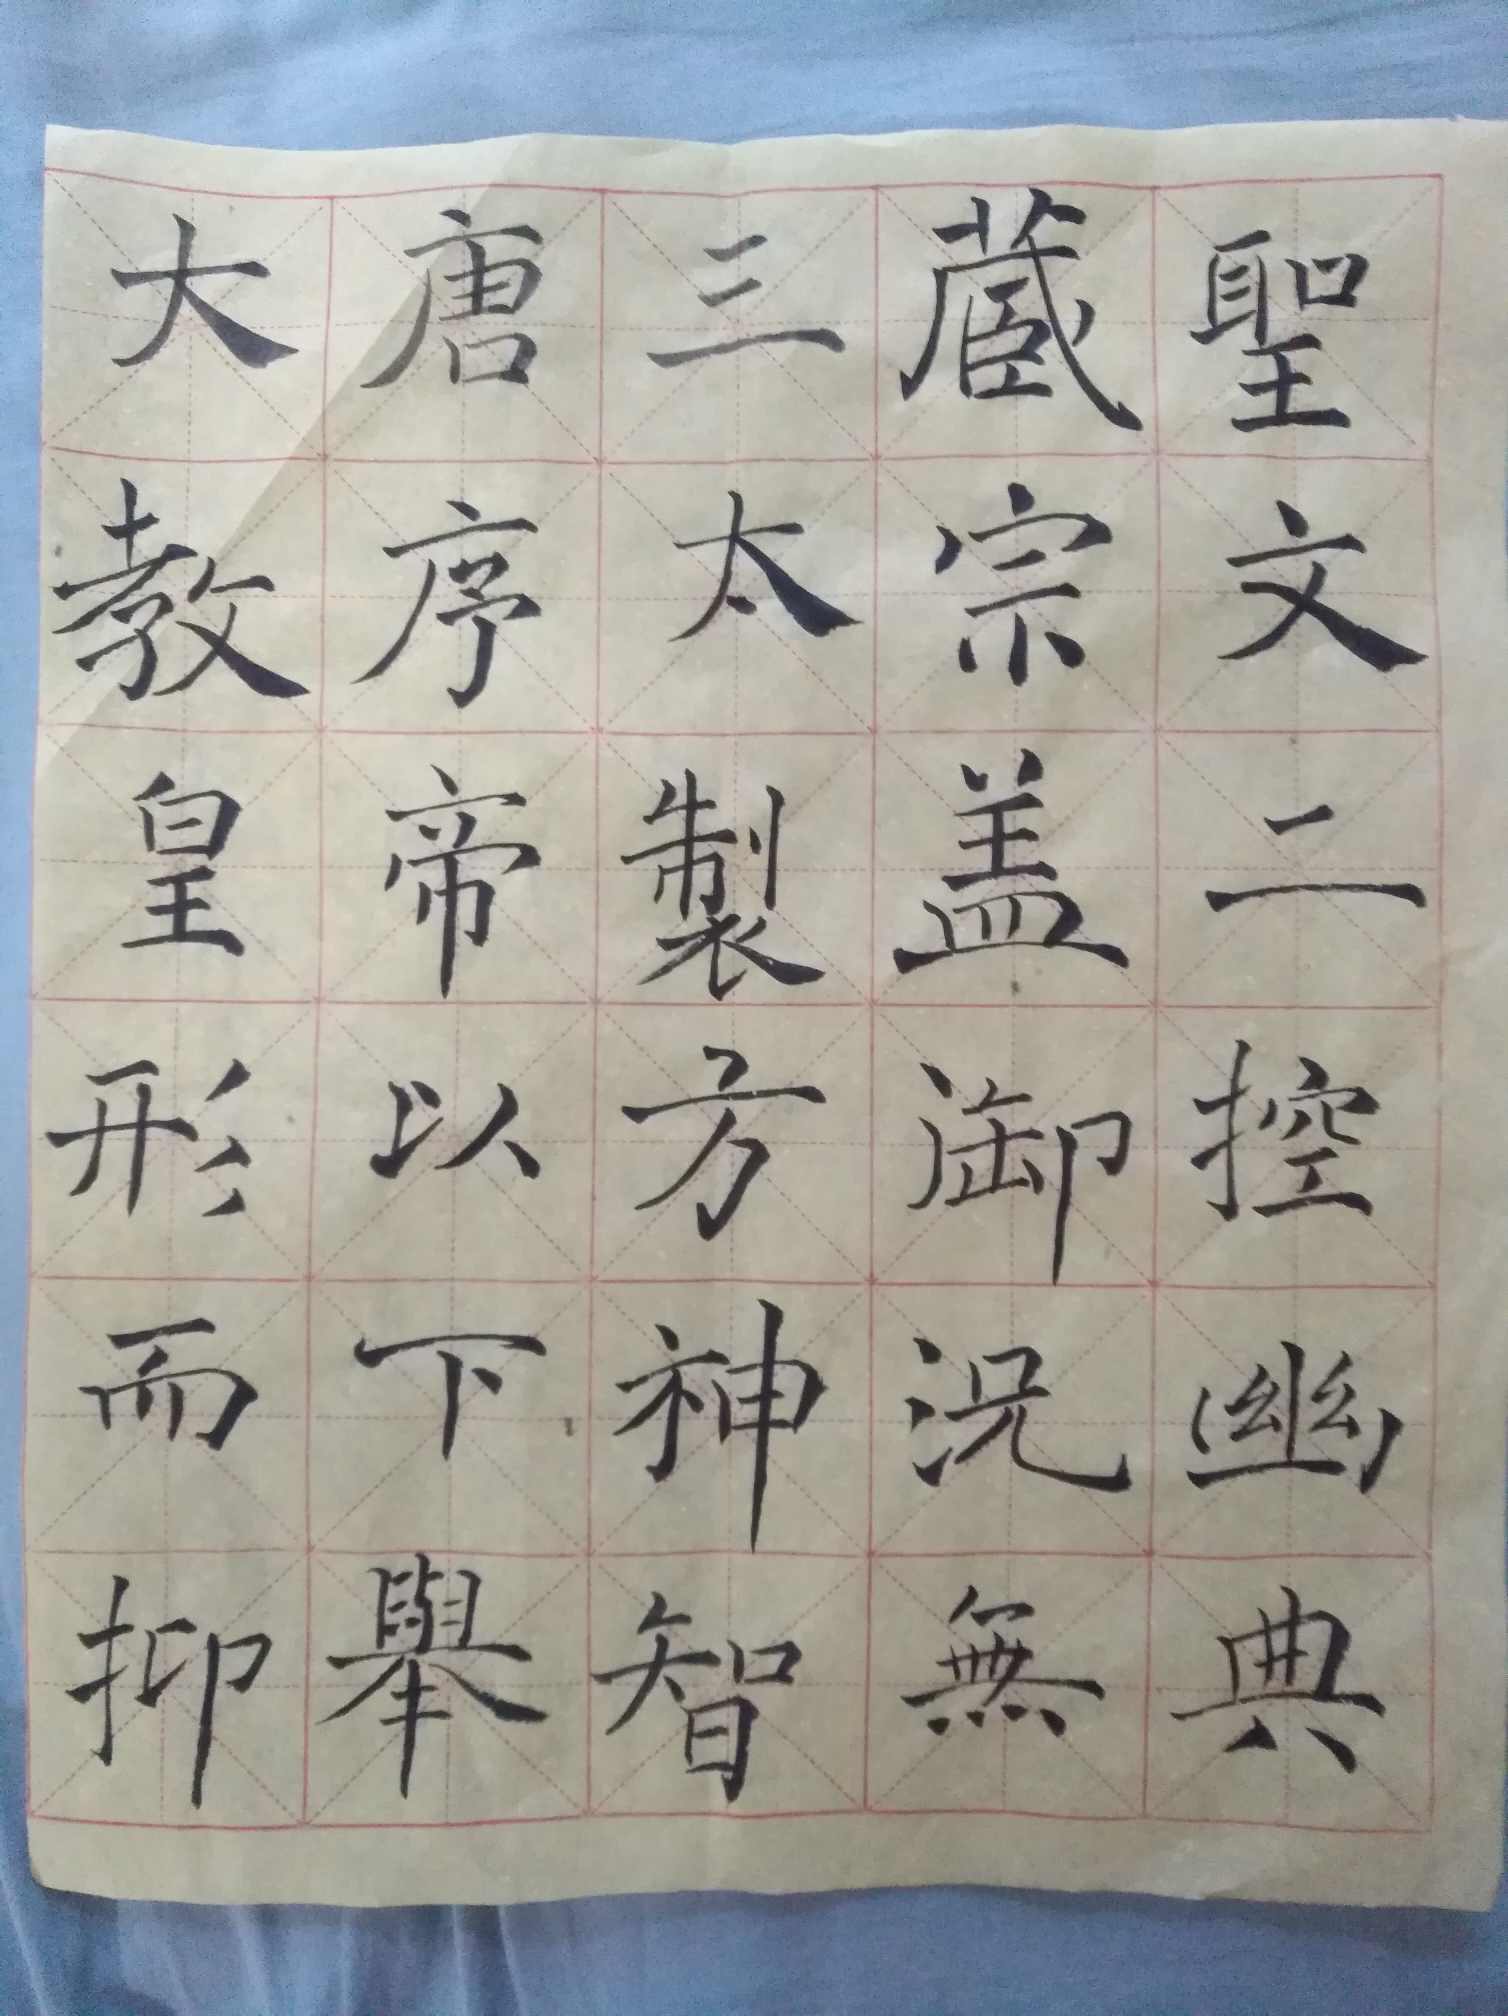 大唐三蔵聖
教序太宗文
皇帝製盖二
形以方御控
而下神況幽
抑舉智無典